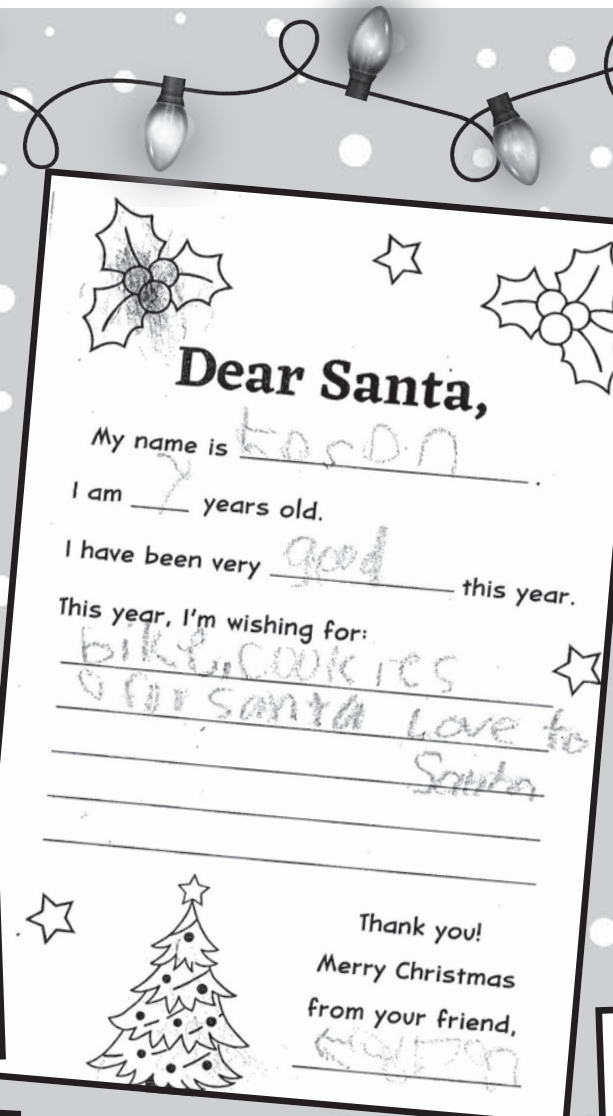 Dear Santa,
My name is
I am 7 years old.
I have been very good this year.
This year, I'm wishing for:
bike, cookies
for santa Love to
Santa
Thank you!
Merry Christmas
from your friend,